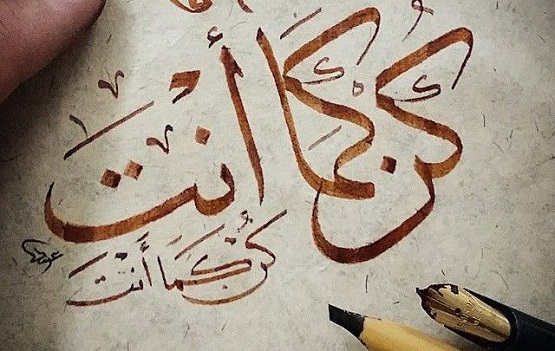 كن كما أنت
كُنْ كَمَا أَنْتَ